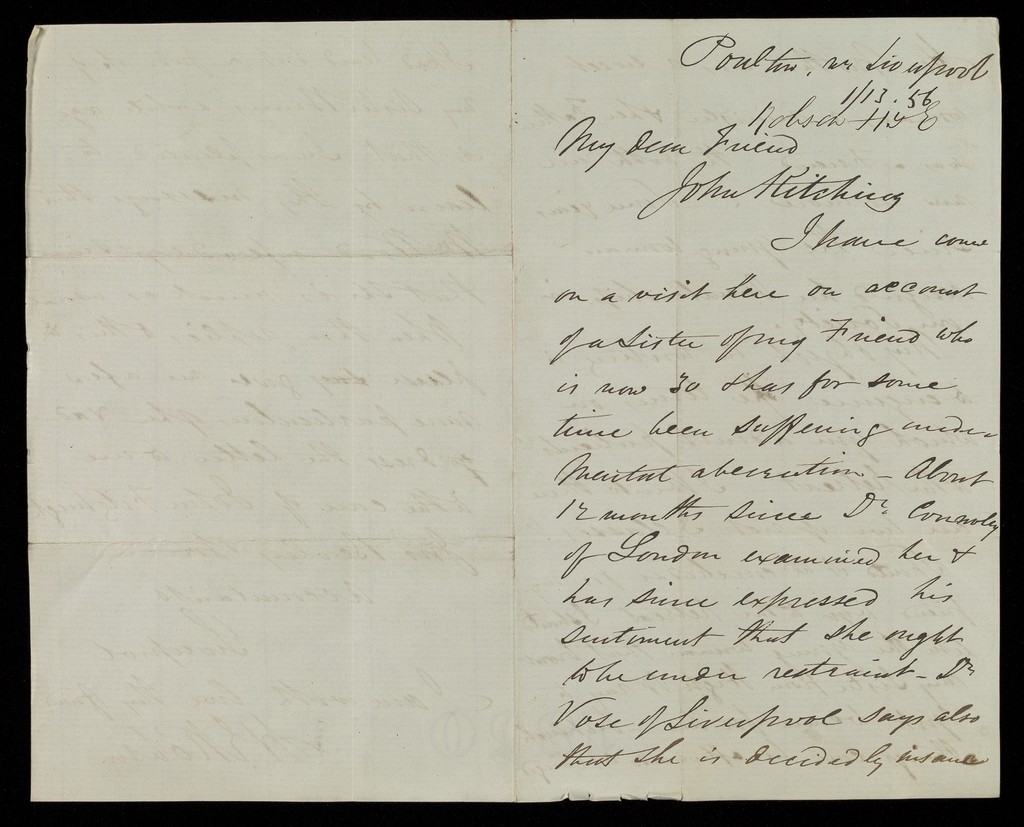 Poulton, nr Liverpool
1/13. 56
My dear Friend
John Kitching
I have come
on a visit here on account
of a Sister of my Friend who
is now 30 & has for some
time been suffering under
Mental aberration - About
12 months since Dr. Connolly
of London examined her &
has since expressed his
sentiment that she ought
to be under restraint - Dr
Vose of Liverpool says also
that she is decidedly insane